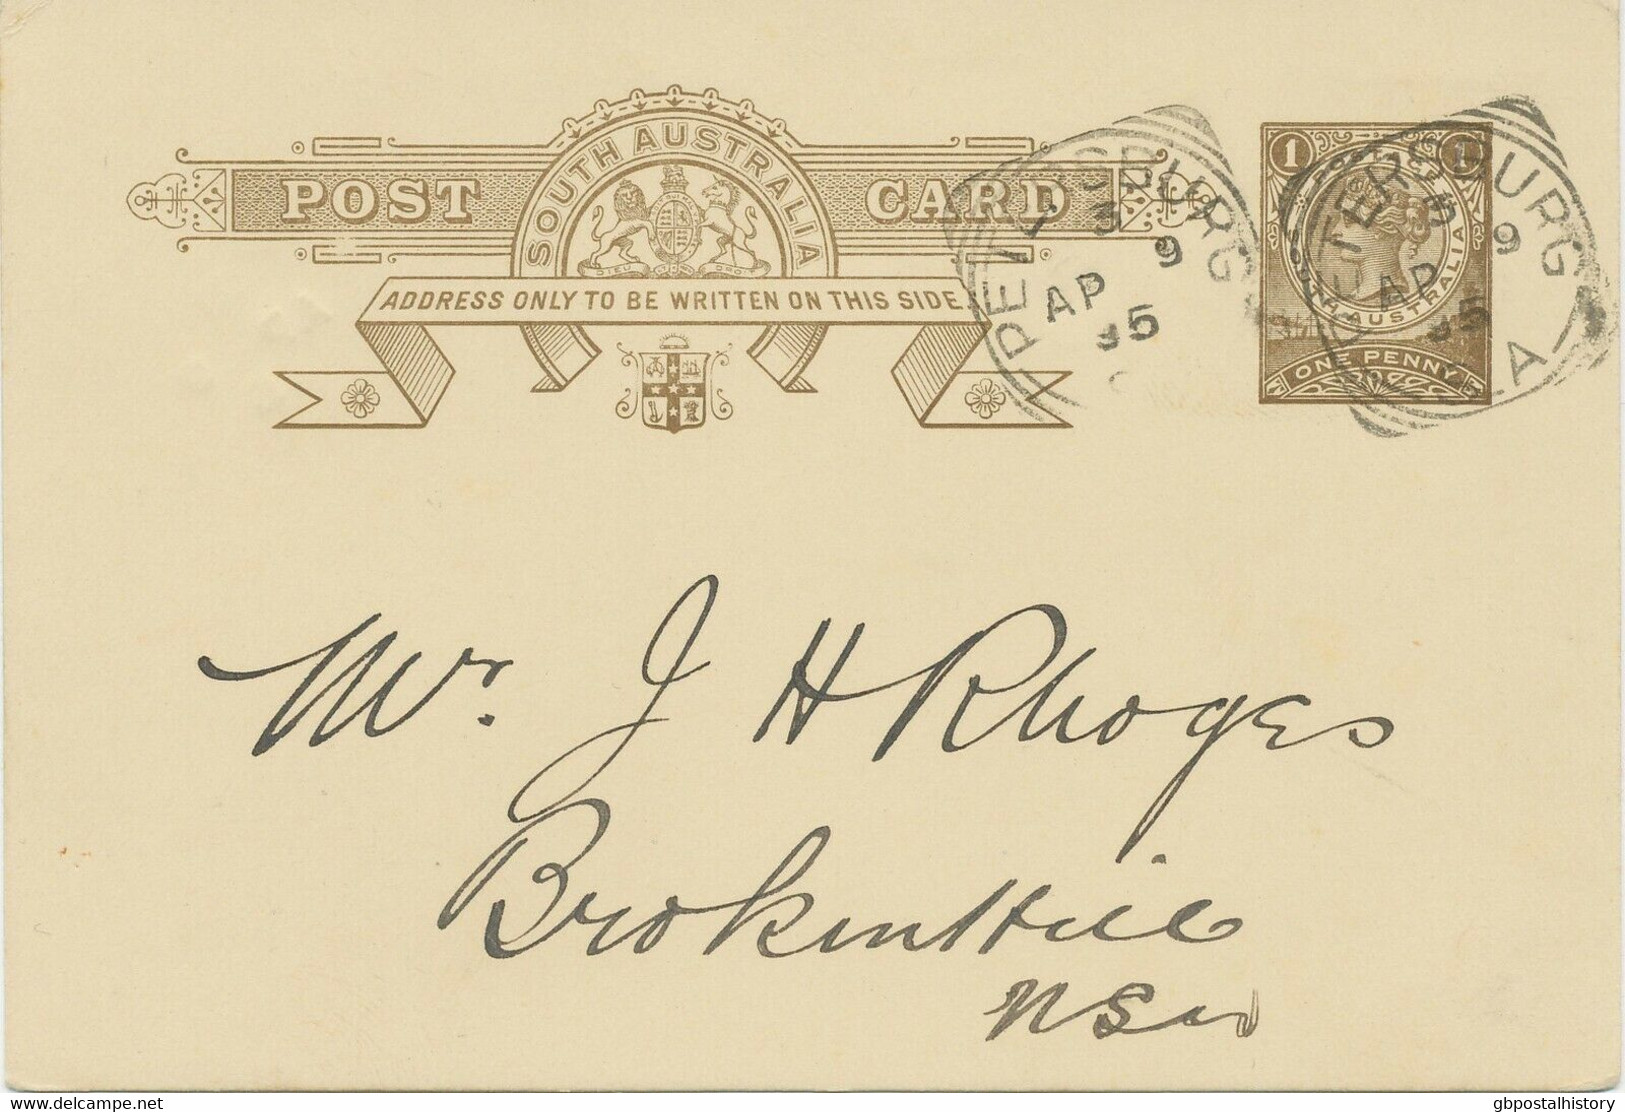 SOUTH AUSTRALIA
POST CARD
ADDRESS ONLY TO BE WRITTEN ON THIS SIDE.
PETERSBURG
3
9
AP
95
1 1
SOUTH AUSTRALIA
ONE PENNY
PETERSBURG
9
AP
95
Mr. J H Rhoges
Broken Hill
NSW
www.delcampe.net
gbpostalhistory